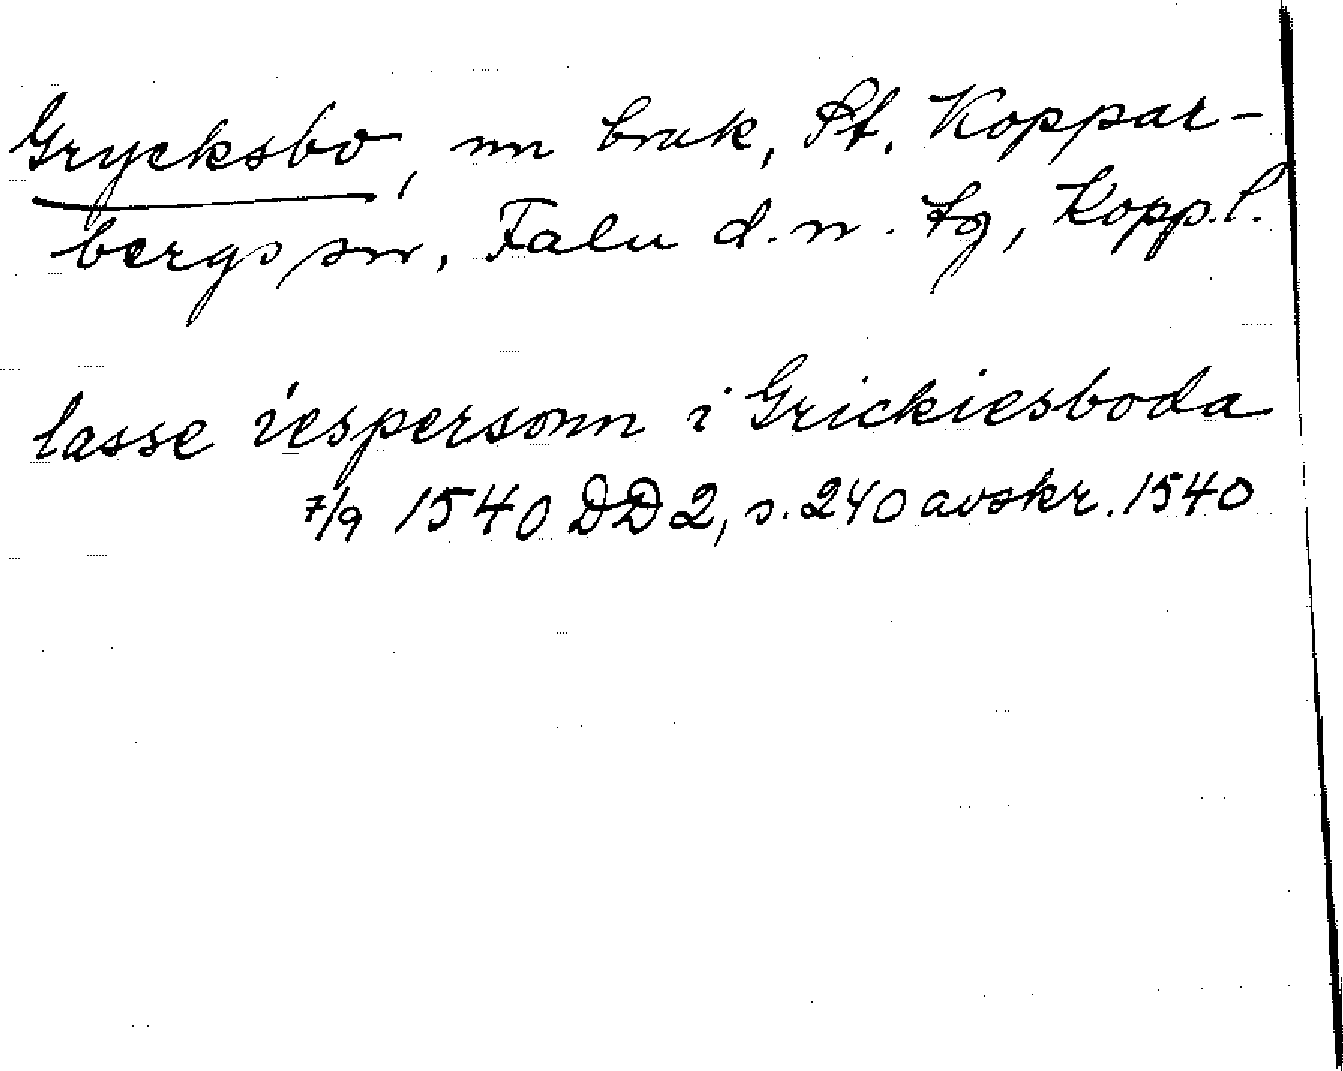 Grycksbo, nu bruk, St. Koppar-
bergs sn, Falu d.n. tg, Kopp.l.
lasse iespersonn i Grickiesboda
7/9 1540 DD2, s. 240 avskr. 1540